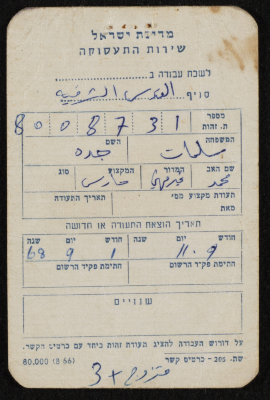 מדינת ישראל
שירות התעסוקה
לשכת עבודה ב
סניף القدس الشرقية
מספר ת. זהות 8 0 0 8 7 3 1
המשפחה השם
سلمات جده
שם האב המדור המקצוע סוג
محمد حارس
תעודת מקצוע מס' תאריך התעודה
מאת
תאריך הוצאת התעודה או חדושה
חודש יום שנה חודש יום שנה
11.9 1 9 68
חתימת פקיד הרשום חתימת פקיד הרשום
שנויים
על דורש העבודה להציג תעודת זהות ביחד עם כרטיס הקשר.
שת. 205 – כרטיס קשר 80.000 (8 66)
متزوج + 3